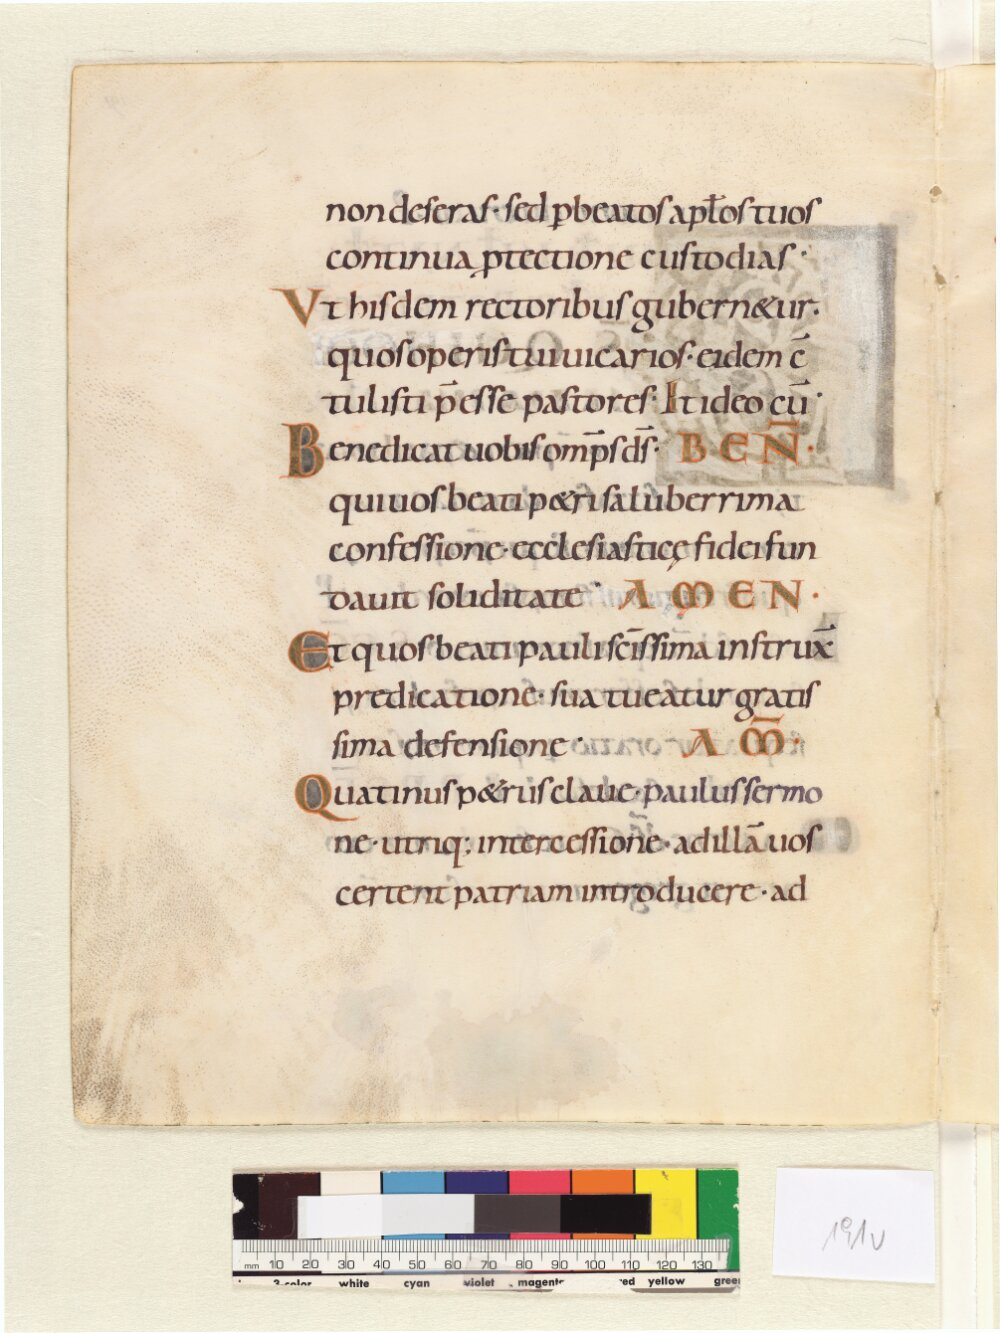 non deseras· sed p beatos apłos tuos
continua ptectione custodias·
Vt hisdem rectoribus gubern&ur·
quos operis tui uicarios· eidem c̄
tulisti p̄esse pastores· It ideo cū·
Benedicat uobis omp̄s d̄s· BEN̄·
qui uos beati p&ri saluberrima
confessione· ecclesiasticę fidei fun
dauit soliditate· AMEN·
Et quos beati pauli sc̄issima instrux̄
predicatione· sua tueatur gratis
sima defensione· AM̄·
Quatinus p&rus claue· paulus sermo
ne· utriq; intercessione· ad illā uos
certent patriam introducere· ad
191v
mm 10 20 30 40 50 60 70 80 90 100 110 120 130
3-color white cyan violet magent red yellow green